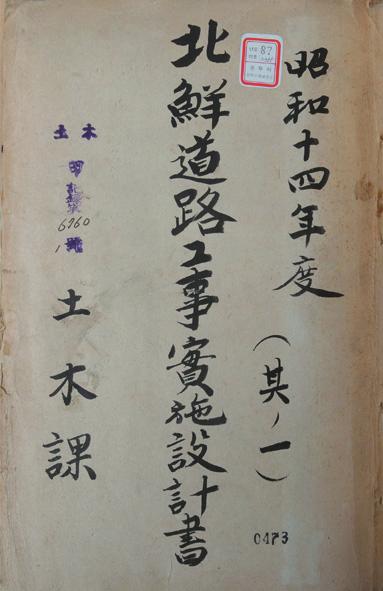 昭和十四年度
(其ノ一)
北鮮道路工事實施設計書
土木課
土木
6960
87
0473